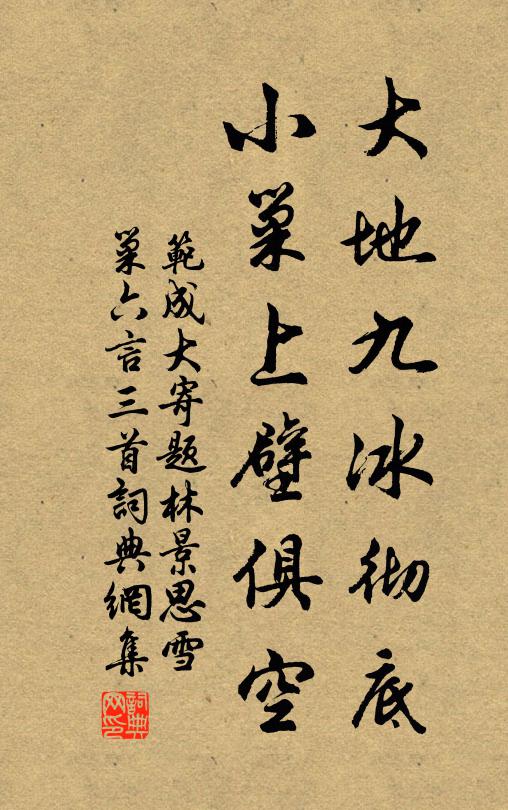 大地九冰彻底
小巢上壁俱空
範成大寄题林景思雪
巢六言三首詞典網集
詞典
网印